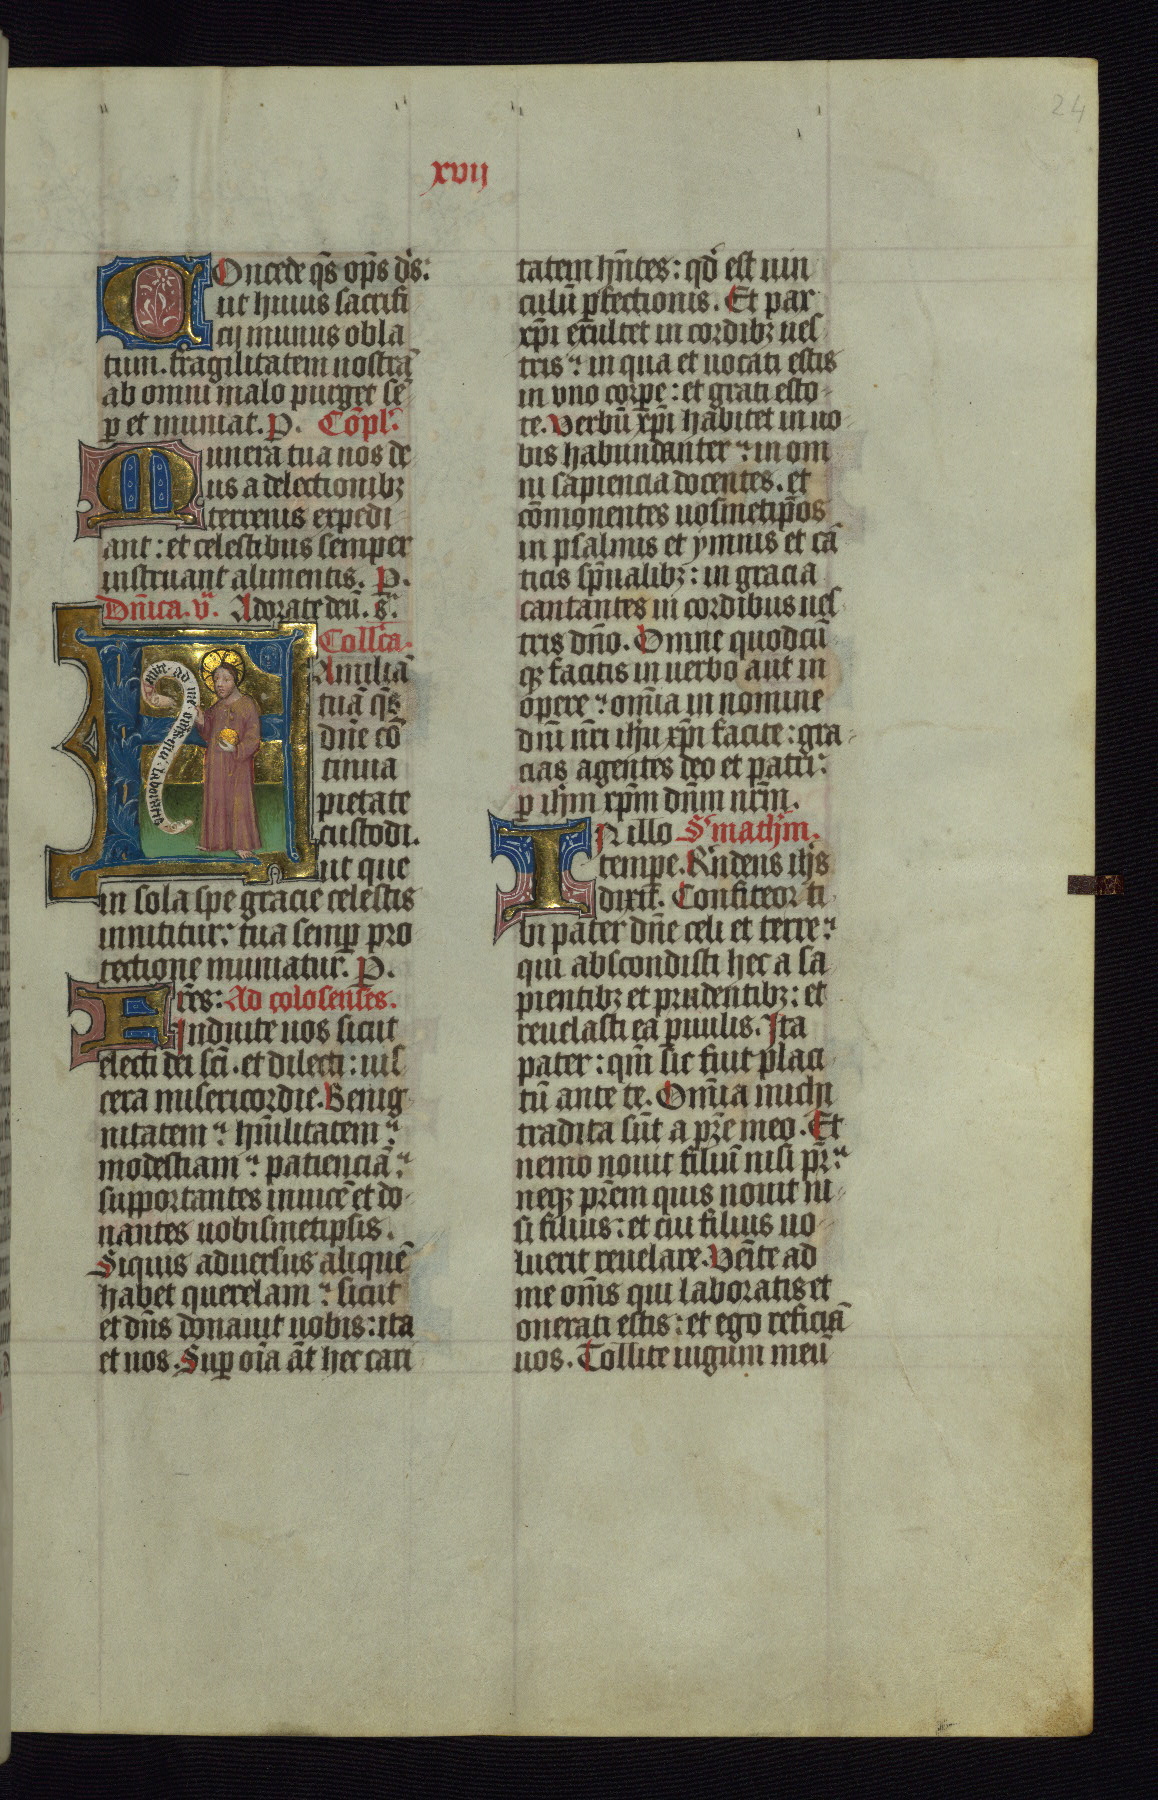 24
xvij
Oncede qs̄ op̄s ds̄:
ut huius sacrifi
cij munus obla
tum. fragilitatem nostrā
ab omni malo purget se
p et muniat. P. Cōpl̄.
Munera tua nos de
us a delectionibȝ
terrenis expedi
ant: et celestibus semper
instruant alimentis. P.
Dn̄ica. v. Adorate deū. s.
Coll̄ca.
Amiliā
tuā qs̄
dn̄e cō
tinua
pietate
custodi.
ut que
venite. ad me. om̄s. qui. laboratis
in sola spe gracie celestis
innititur: tua semp pro
tectione muniatur. P.
Fr̄es: Ad colosenses.
Induite uos sicut
electi dei sc̄i. et dilecti: uis
cera misericordie. Benig
nitatem: hūilitatem:
modestiam: patienciā:
supportantes inuicē et do
nantes uobismetipsis.
Siquis aduersus aliquē
habet querelam: sicut
et dn̄s donauit uobis: ita
et uos. Sup oīa āt hec cari
tatem hn̄tes: qd̄ est uin
culū pfectionis. Et pax
xp̄i exultet in cordibȝ ues
tris: in qua et uocati estis
in vno corpe: et grati esto
te. Verbū xp̄i habitet in uo
bis habundanter: in om
ni sapiencia docentes. et
cōmonentes uosmetip̄os
in psalmis et ymnis et cā
ticis sp̄ualibȝ: in gracia
cantantes in cordibus ues
tris dn̄o. Omne quodcū
qȝ facitis in uerbo aut in
opere: om̄ia in nomine
dn̄i nr̄i ih̄u xp̄i facite: gra
cias agentes deo et patri:
p ih̄m xp̄m dn̄m nr̄m.
IN illo S. math̄m.
tempe. Rn̄dens ih̄s
dixit. Confiteor ti
bi pater dn̄e celi et terre:
qui abscondisti hec a sa
pientibȝ et prudentibȝ: et
reuelasti ea puulis. Ita
pater: qm̄ sic fuit placi
tū ante te. Om̄ia michi
tradita sūt a pr̄e meo. Et
nemo nouit filiū nisi pr̄:
neqȝ pr̄em quis nouit ni
si filius: et cui filius uo
luerit reuelare. Ven̄ite ad
me om̄s qui laboratis et
onerati estis: et ego reficiā
uos. Tollite iugum meū